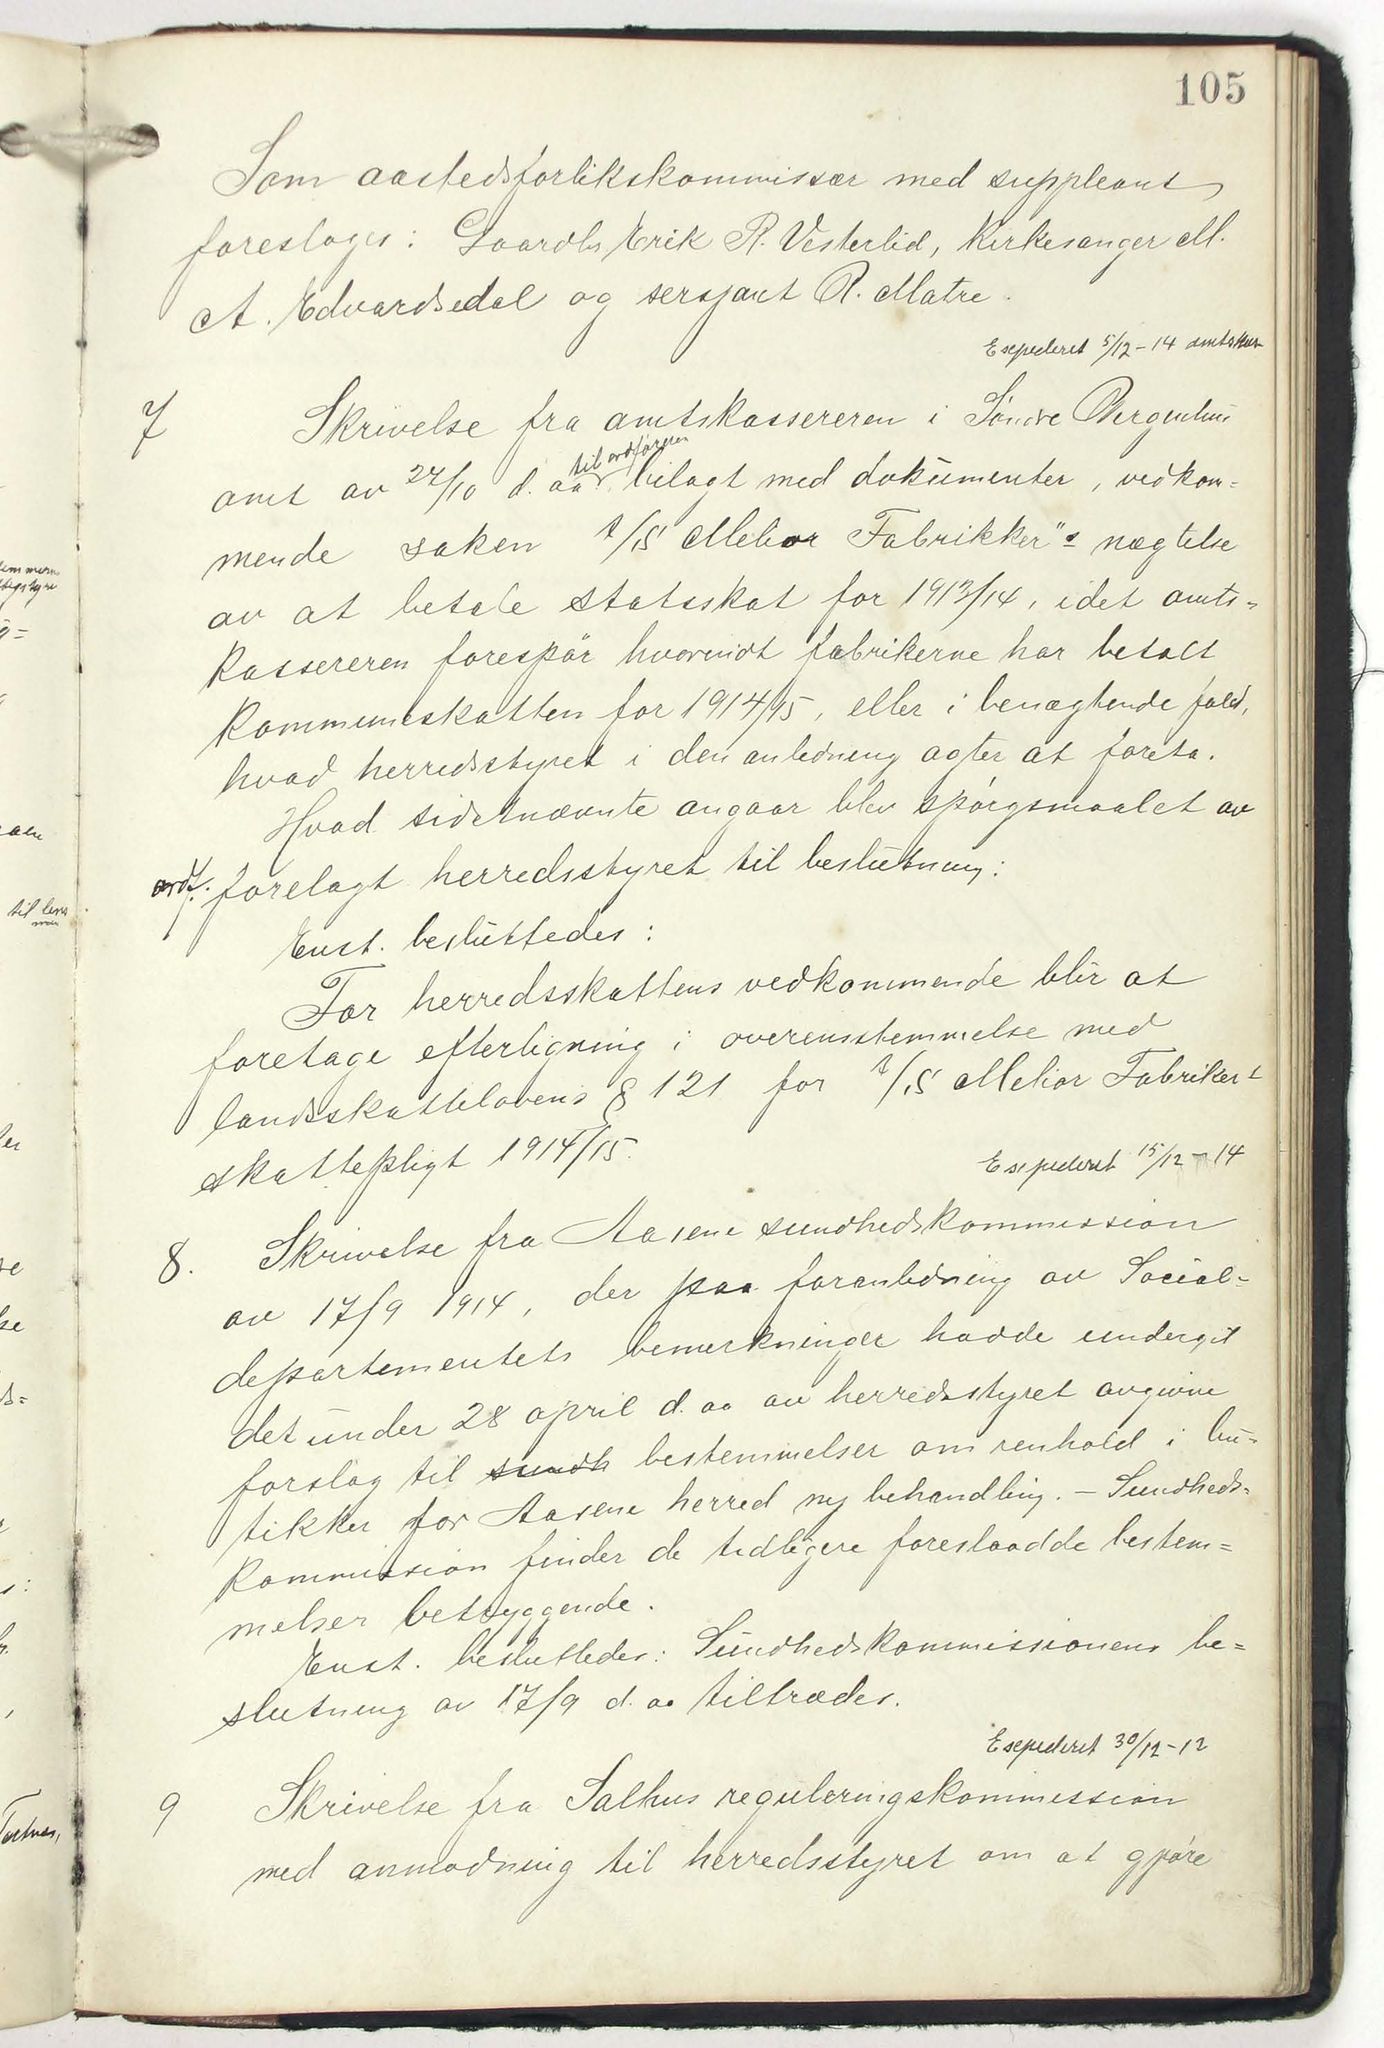 105
Som aastedsforlikskommissær med suppleant
foreslages: Gaardbr Erik R. Vesterlid, Kirkesanger M.
A. Edvardsdal og sersjant R. Matre.
Expederet 5/12-14 amtskas
7 Skrivelse fra amtskassereren i Søndre Bergenhus
til ordføreren
amt av 27/10 d. aa bilagt med dokumenter, vedkom=
mende saken A/S Melior Fabrikker"s nægtelse
av at betale statsskat for 1913/14, idet amts=
kassereren forespør hvorvidt fabrikerne har betalt
kommuneskatten for 1914/15, eller i benægtende fald,
hvad herredsstyret i den anledning agter at foreta.
Hvad sidstnævnte angaar blev spørgsmaalet av
ordf. forelagt herredsstyret til beslutning:
Enst. besluttedes:
For herredsskattens vedkommende blir at
foretage efterligning i overensstemmelse med
landsskattelovens § 121 for A/S Melior Fabrikers
skattepligt 1914/15.
Expederet 15/12-14
8. Skrivelse fra Aasene sundhedskommission
av 17/9 1914, der paa foranledning av Social=
departementets bemerkninger hadde undergit
det under 28 april d. aa av herredsstyret avgivne
forslag til sundh bestemmelser om renhold i bu=
tikker for Aasene herred ny behandling. - Sundheds=
kommission finder de tidligere foreslaadde bestem=
melser betryggende.
Enst. besluttedes: Sundhedskommissionens be=
slutning av 17/9 d. aa tiltrædes.
Expederet 30/12-12
9 Skrivelse fra Salhus reguleringskommission
med anmodning til herredsstyret om at gjøre